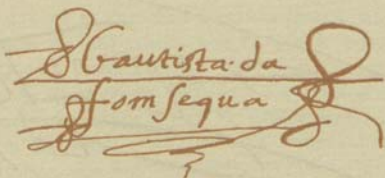 Bautista da
fomsequa